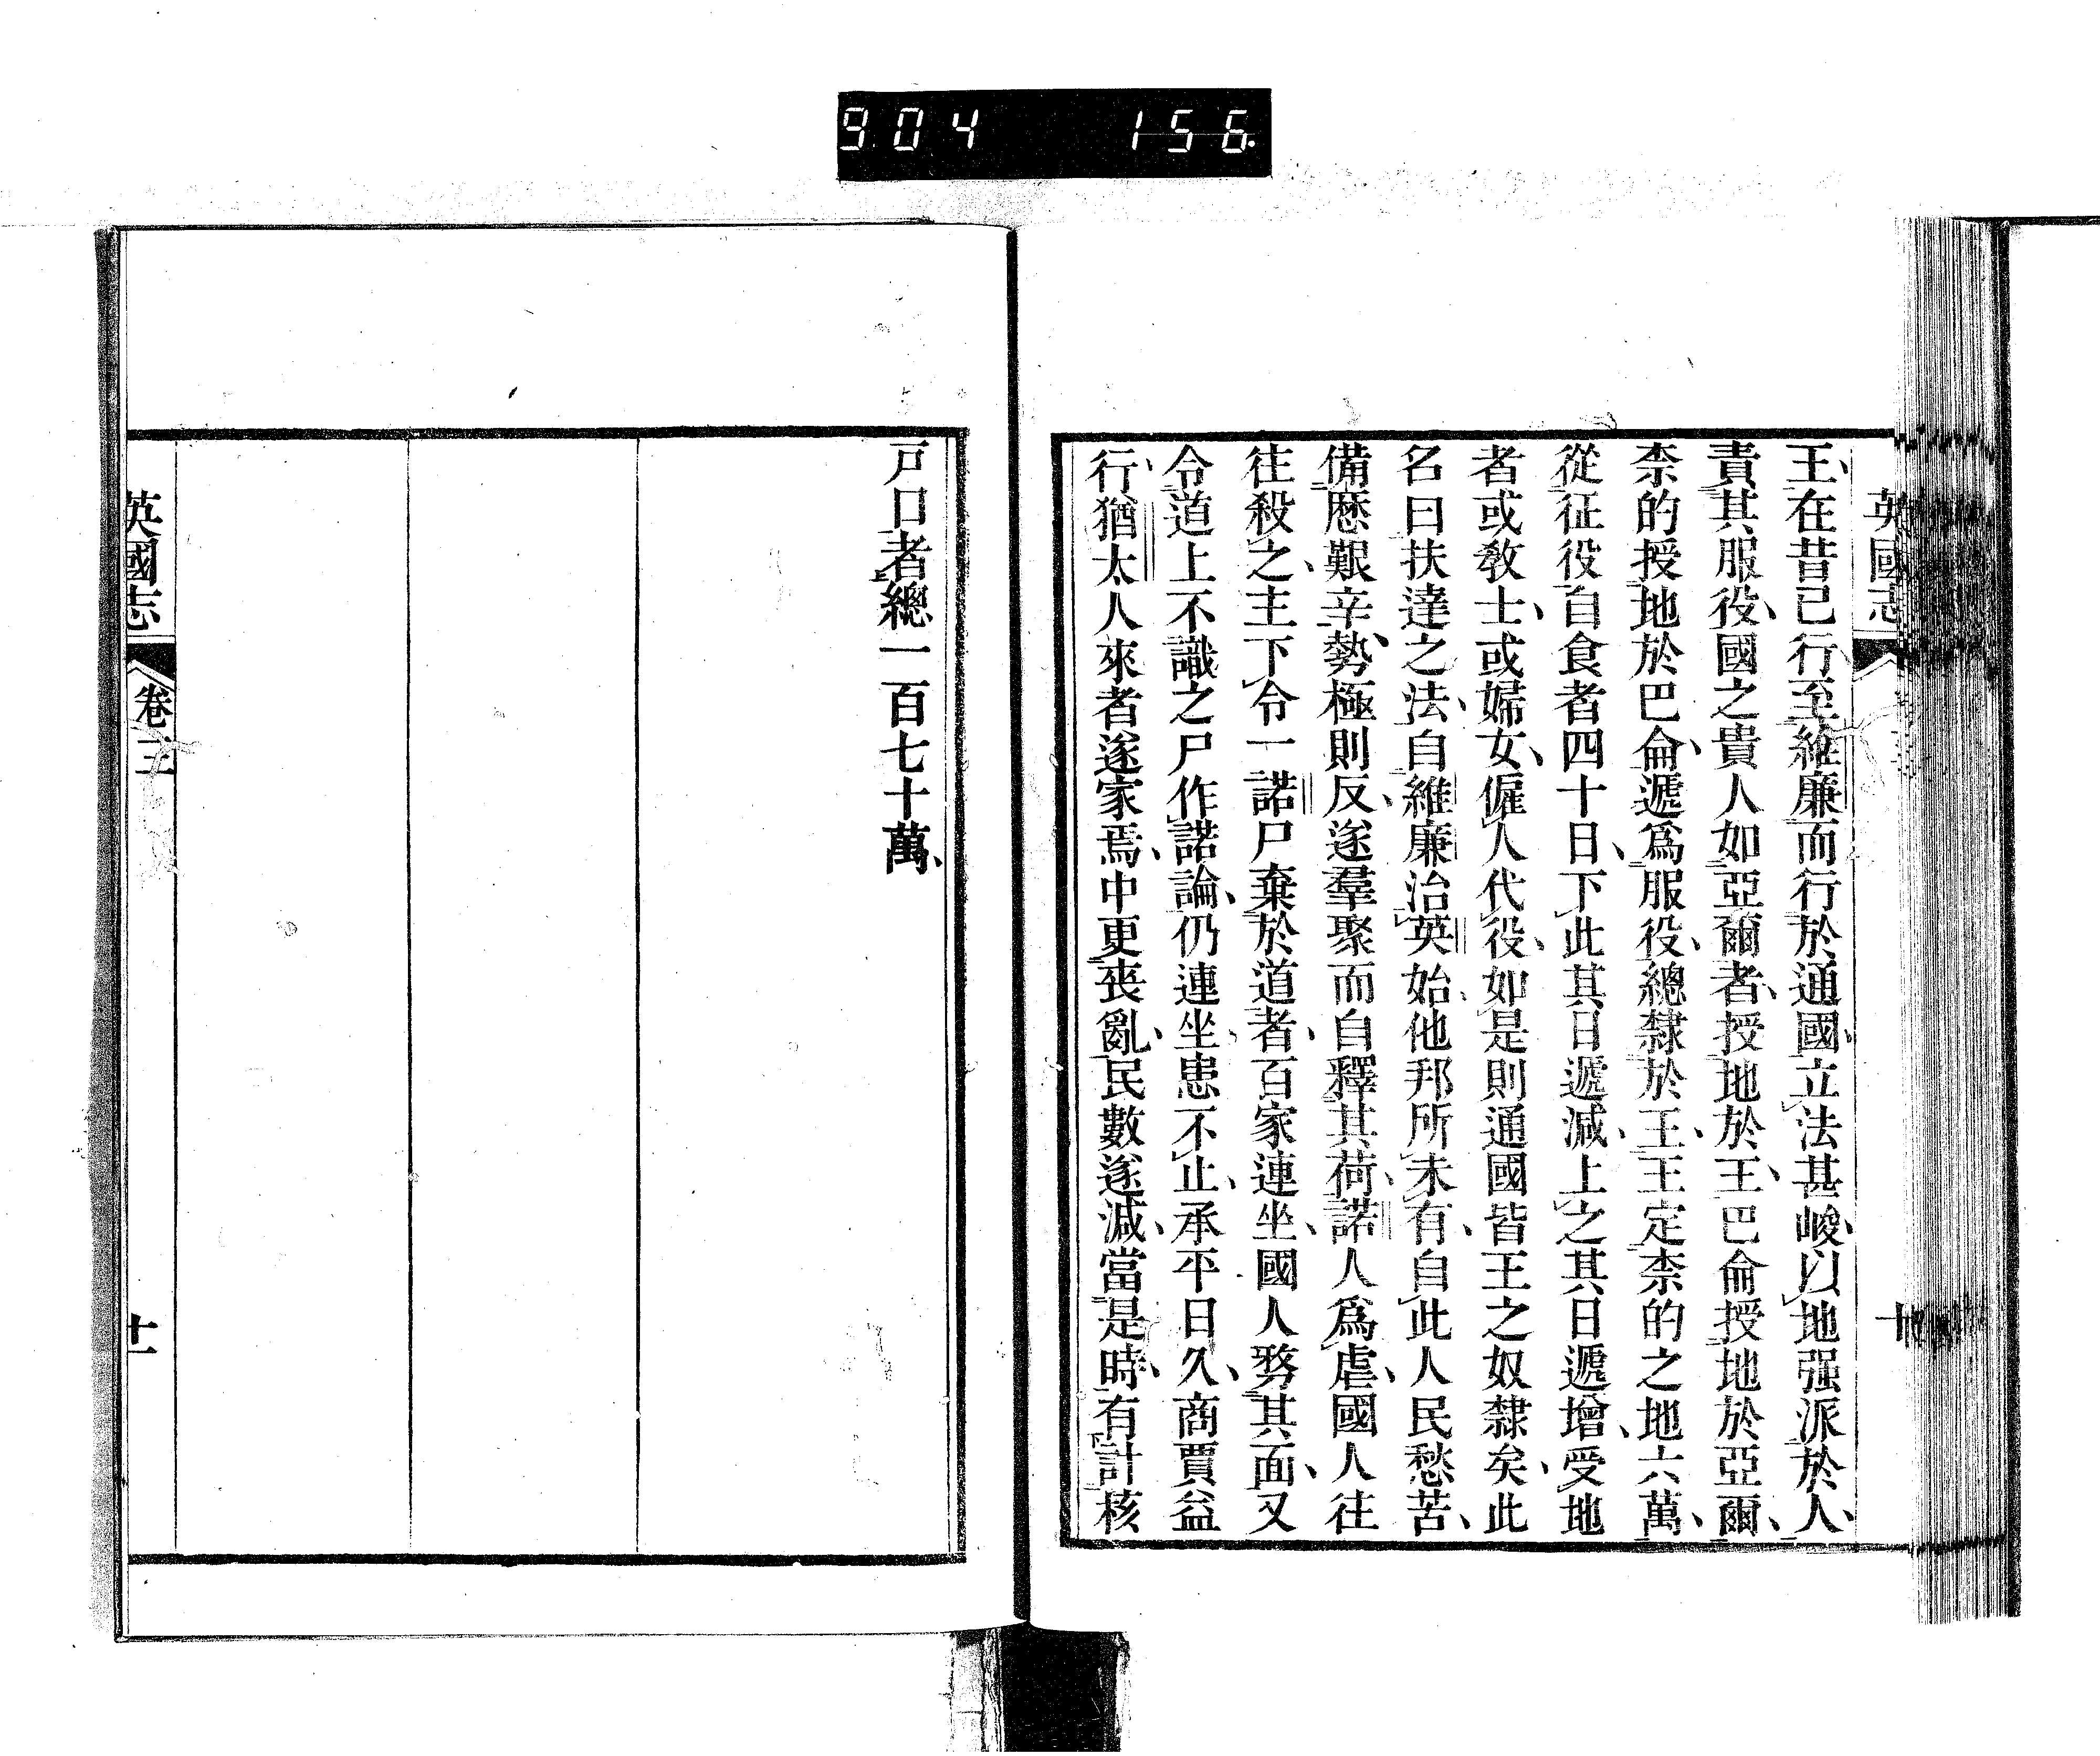 904 156
英國志
王、在昔已行、至維廉而行於通國、立法甚峻、以地强派於人、
責其服役、國之貴人如亞爾者、授地於王、巴侖授地於亞爾、
柰的授地於巴侖、遞爲服役、總隸於王、王定柰的之地六萬、
從征役自食者四十日、下此其日遞減、上之其日遞增、受地
者或敎士、或婦女、僱人代役、如是則通國皆王之奴隸矣、此
名曰扶達之法、自維廉治英始、他邦所未有、自此人民愁苦、
備歷艱辛、勢極則反、遂羣聚而自釋其荷、諾人爲虐、國人往
往殺之、主下令一諾尸棄於道者、百家連坐、國人剺其面、又
令道上不識之尸作諾論、仍連坐、患不止、承平日久、商賈益
行、猶太人來者遂家焉、中更喪亂、民數遂減、當是時、有計核
戸口者總一百七十萬、
英國志
卷三
十一